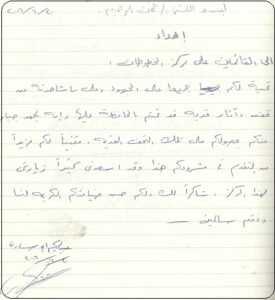 بسم الله الرحمن الرحيم
إهداء
إلى القائمين على مركز المخطوطات :
تحية لكم جميعاً على الجهود وعلى ما شاهدته من
تحف وآثار قديمة قد قمتم بالمحافظة عليها وإنه لجهد جبار
منكم بحصولكم على تلك التحف القديمة ، متمنياً لكم مزيداً
من التقدم في مشروعكم هذا وقد أسعدني كثيراً زيارتي
لهذا المركز وشاكراً لكم حسن ضيافتكم الكريمة لنا
ودمتم سالمين